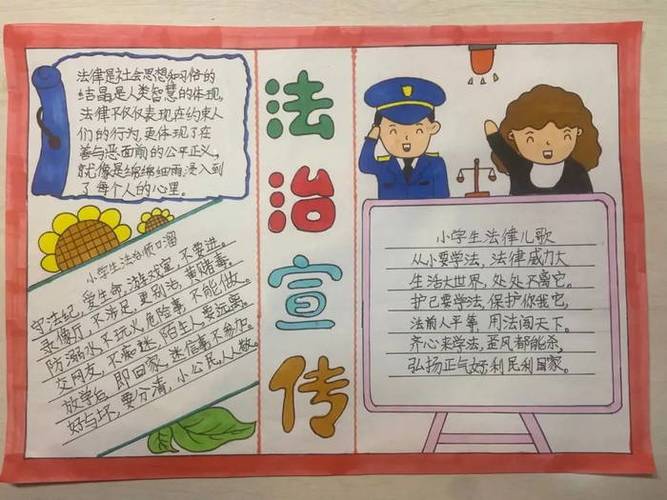 法律是社会思想和习俗的
结晶是人类智慧的体现。
法律不仅仅表现在约束人
们的行为,更体现了在
善与恶面前的公平正义,
就像是绵绵细雨浸入到
了每个人的心里。
小学生法治顺口溜
守法纪,爱生命,游戏室,不要进。
录像厅,不涉足,更别沾,黄赌毒;
防溺水不玩火危险事,不能做。
交网友,不痴迷,陌生人,要远离。
放学后,即回家,迷信事不参加。
好与坏,要分清,小公民,人人敬。
法治宣传
小学生法律儿歌
从小要学法,法律威力大
生活大世界,处处不离它。
护己要学法,保护你我它,
法前人平等,用法闯天下。
齐心来学法,歪风都能杀,
弘扬正气好,利民利国家。